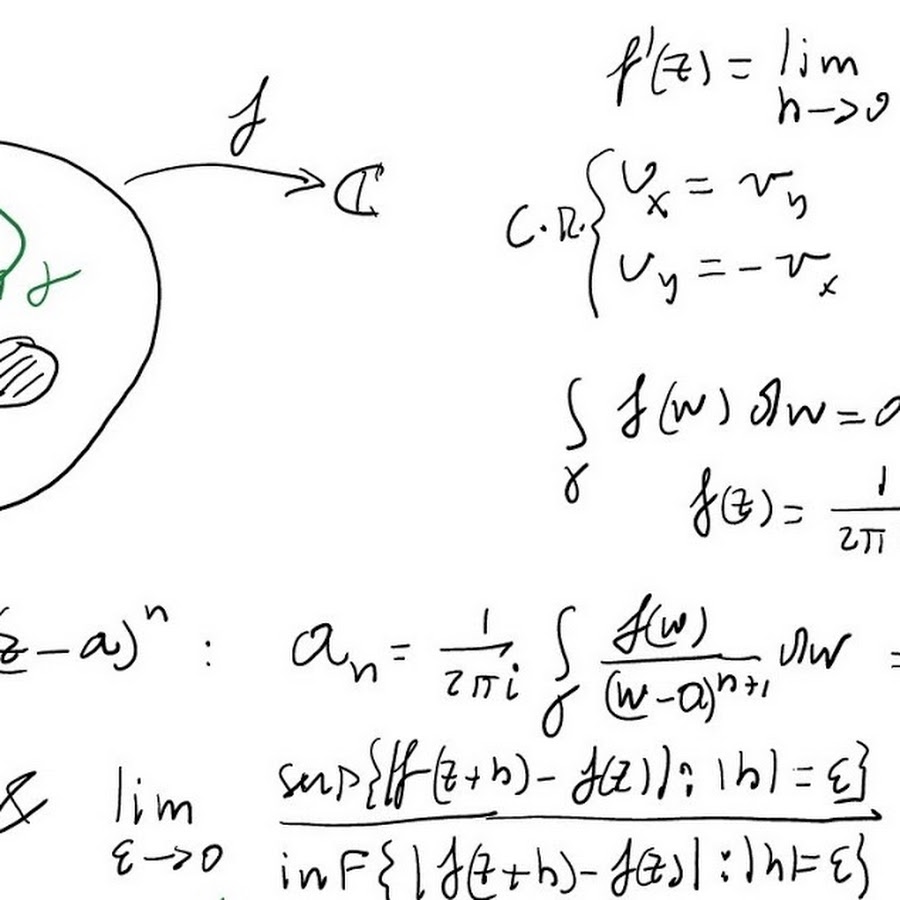 f'(z) = lim
h→0
f
ℂ
C.R. { u_x = v_y
u_y = -v_x
γ
∫_γ f(w) dw = 0
f(z) = 1/2πi
(z-a)^n : a_n = 1/(2πi) ∫_γ f(w)/(w-a)^{n+1} dw =
& lim_{ε→0} sup{|f(z+h)-f(z)| : |h|=ε}
inf{|f(z+h)-f(z)| : |h|=ε}